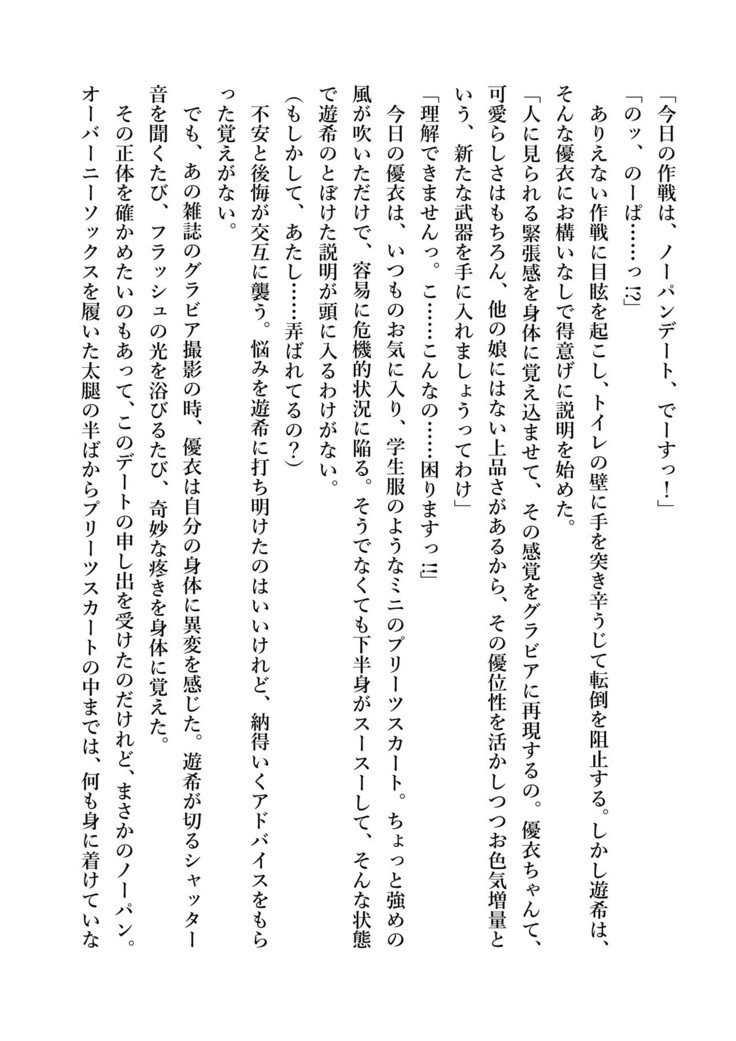 「今日の作戦は、ノーパンデート、でーすっ！」
「のッ、のーぱ……っ!?」
　ありえない作戦に目眩を起こし、トイレの壁に手を突き辛うじて転倒を阻止する。しかし遊希は、
そんな優衣にお構いなしで得意げに説明を始めた。
「人に見られる緊張感を身体に覚え込ませて、その感覚をグラビアに再現するの。優衣ちゃんて、
可愛らしさはもちろん、他の娘にはない上品さがあるから、その優位性を活かしつつお色気増量と
いう、新たな武器を手に入れましょうってわけ」
「理解できませんっ。こ……こんなの……困りますっ!!」
　今日の優衣は、いつものお気に入り、学生服のようなミニのプリーツスカート。ちょっと強めの
風が吹いただけで、容易に危機的状況に陥る。そうでなくても下半身がスースーして、そんな状態
で遊希のとぼけた説明が頭に入るわけがない。
(もしかして、あたし……弄ばれてるの？)
　不安と後悔が交互に襲う。悩みを遊希に打ち明けたのはいいけれど、納得いくアドバイスをもら
った覚えがない。
　でも、あの雑誌のグラビア撮影の時、優衣は自分の身体に異変を感じた。遊希が切るシャッター
音を聞くたび、フラッシュの光を浴びるたび、奇妙な疼きを身体に覚えた。
　その正体を確かめたいのもあって、このデートの申し出を受けたのだけれど、まさかのノーパン。
オーバーニーソックスを履いた太腿の半ばからプリーツスカートの中までは、何も身に着けていな